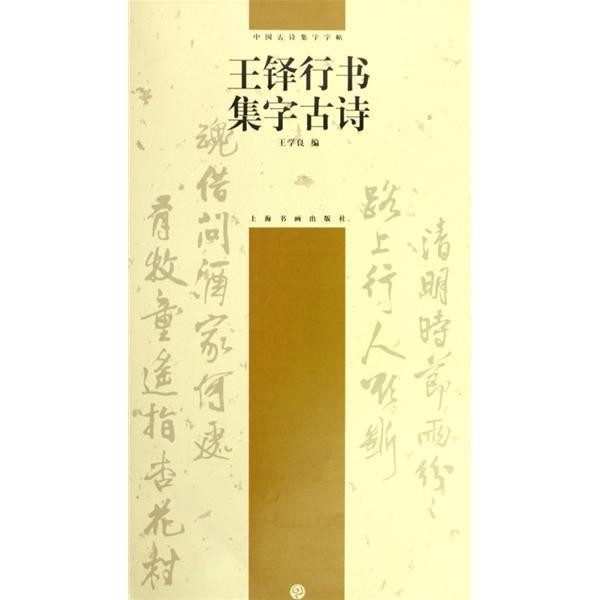 中国古诗集字字帖
王铎行书
集字古诗
王学良 编
上海书画出版社
清明時節雨紛々
路上行人欲斷
魂借問酒家何處
有牧童遙指杏花村